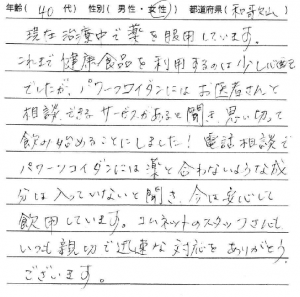 年齢( 40 代) 性別( 男性・女性) 都道府県( 和歌山 )
現在治療中で薬を服用しています。
これまで健康食品を利用するのは少し心配
でしたが、パワーフコイダンにはお医者さんと
相談できるサービスがあると聞き、思い切って
飲み始めることにしました！電話相談で
パワーフコイダンには薬と合わないような成
分は入っていないと聞き、今は安心して
飲用しています。コムネットのスタッフさんにも
いつも親切で迅速な対応をありがとう
ございます。